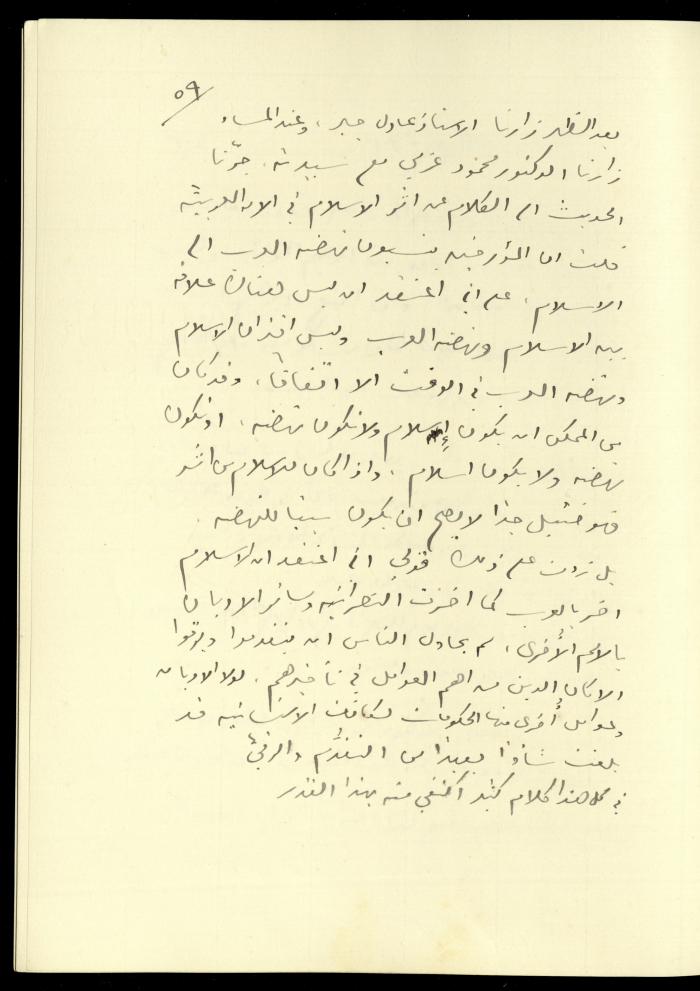 ٥٩
بعد الظهر زارنا الاستاذ عادل جبر، وعند المساء
زارنا الدكتور محمود عزمي مع سيدته. جرّنا
الحديث الى الكلام عن اثر الاسلام في الامة العربية
قلت ان المؤرخين ينسبون نهضة العرب الى
الاسلام، على اني اعتقد ان ليس هناك علاقة
بين الاسلام ونهضة العرب وليس اقتران الاسلام
ونهضة العرب في الوقت الا اتفاقًا، وقد كان
من الممكن ان يكون إسلام ولا تكون نهضة، او تكون
نهضة ولا يكون اسلام. واذا كان للاسلام من اثر
فهو ضئيل جدا لا يصح ان يكون سببا للنهضة.
بل زدت على ذلك قولي اني اعتقد ان الاسلام
اضر بالعرب كما اضرت النصرانية وسائر الاديان
بالامم الأخرى، لم يحاول الناس ان يتقدموا ويرقوا
الا كان الدين من اهم العوامل في تأخيرهم. لولا الاديان
وعوامل أخرى منها الحكومات لكانت الانسانية قد
بلغت شأوًا بعيدًا من التقدّم والرقيّ
في كل هذا كلام كثير اكتفي منه بهذا القدر